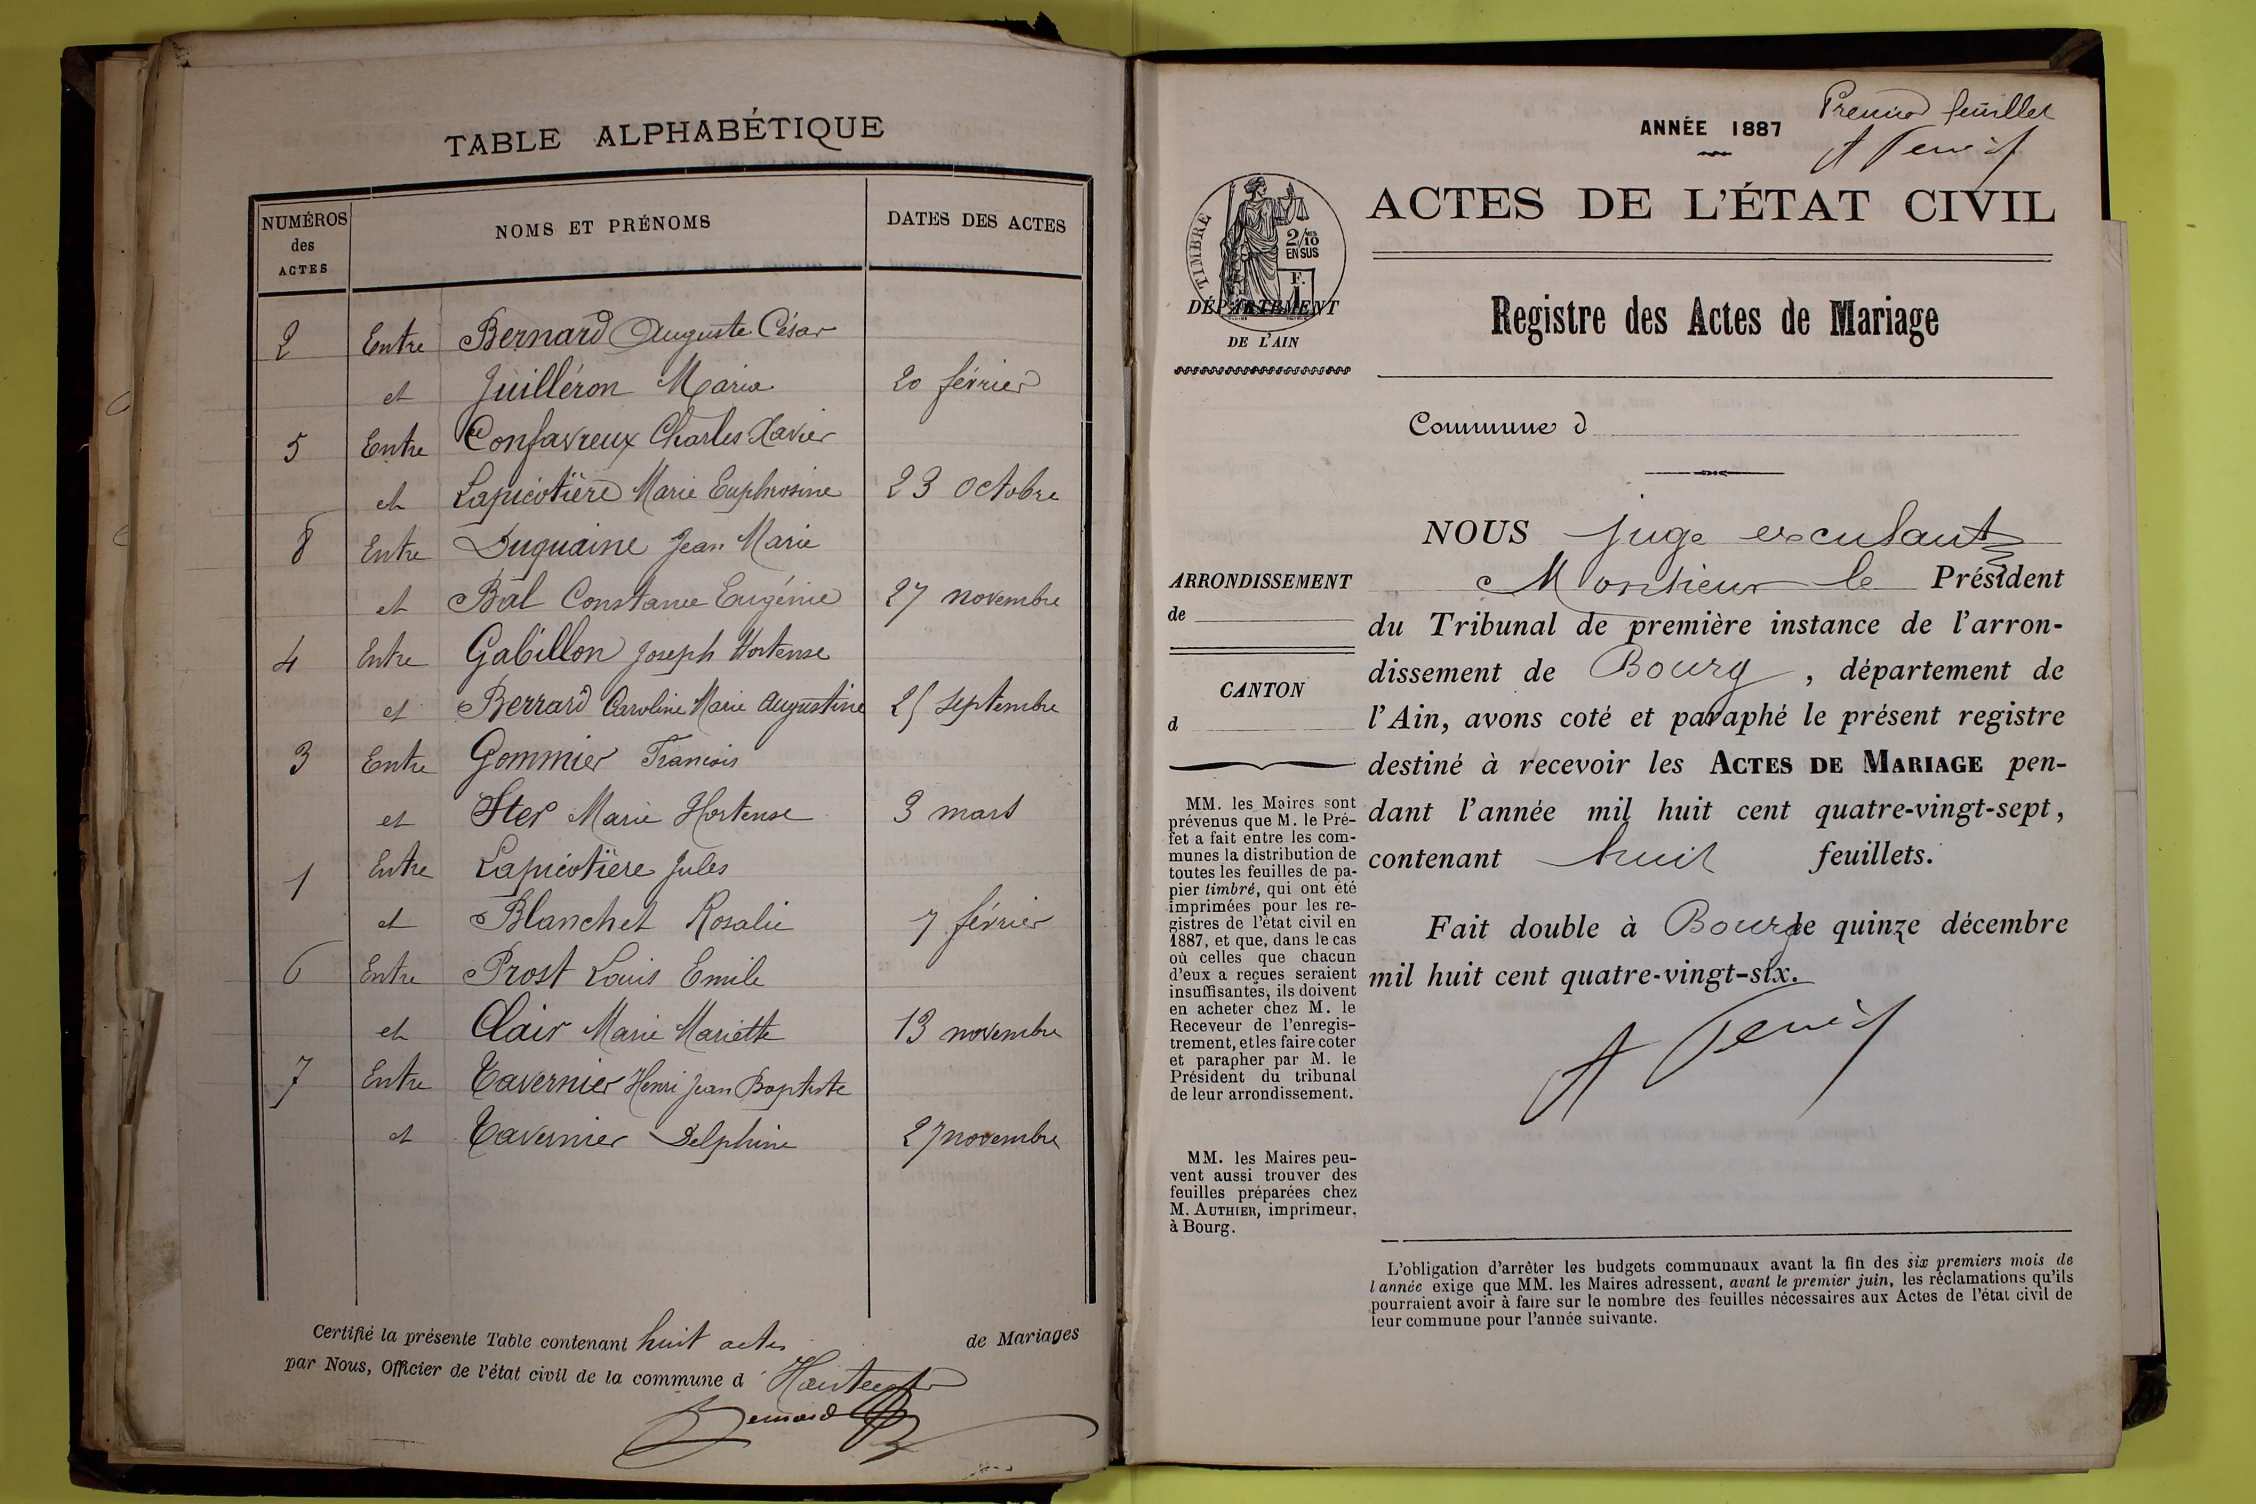 TABLE ALPHABÉTIQUE
NUMÉROS des ACTES
NOMS ET PRÉNOMS
DATES DES ACTES
2 Entre Bernard Auguste César
et Juilléron Maria 20 février
5 Entre Confavreux Charles Xavier
et Lapicotière Marie Euphrosine 23 octobre
8 Entre Duquaine Jean Marie
et Bal Constance Eugénie 27 novembre
4 Entre Gabillon Joseph Hortense
et Berrard Caroline Marie Augustine 25 septembre
3 Entre Gommier Francois
et Ster Marie Hortense 3 mars
1 Entre Lapicotière Jules
et Blanchet Rosalie 7 février
6 Entre Prost Louis Emile
et Clair Marie Mariette 13 novembre
7 Entre Tavernier Henri Jean Baptiste
et Tavernier Delphine 27 novembre
Certifié la présente Table contenant huit actes de Mariages
par Nous, Officier de l'état civil de la commune d
Bernard
Premier feuillet
ANNÉE 1887
TIMBRE
2/10
EN SUS
F.
1
DÉPARTEMENT
DE L'AIN
ACTES DE L'ÉTAT CIVIL
Registre des Actes de Mariage
Commune d
ARRONDISSEMENT
de
CANTON
d
MM. les Maires sont
prévenus que M. le Pré-
fet a fait entre les com-
munes la distribution de
toutes les feuilles de pa-
pier timbré, qui ont été
imprimées pour les re-
gistres de l'état civil en
1887, et que, dans le cas
où celles que chacun
d'eux a reçues seraient
insuffisantes, ils doivent
en acheter chez M. le
Receveur de l'enregis-
trement, et les faire coter
et parapher par M. le
Président du tribunal
de leur arrondissement.
MM. les Maires peu-
vent aussi trouver des
feuilles préparées chez
M. AUTHIER, imprimeur,
à Bourg.
NOUS juge excusant
Monsieur le Président
du Tribunal de première instance de l'arron-
dissement de Bourg, département de
l'Ain, avons coté et paraphé le présent registre
destiné à recevoir les ACTES DE MARIAGE pen-
dant l'année mil huit cent quatre-vingt-sept,
contenant huit feuillets.
Fait double à Bourg le quinze décembre
mil huit cent quatre-vingt-six.
L'obligation d'arrêter les budgets communaux avant la fin des six premiers mois de
l'année exige que MM. les Maires adressent, avant le premier juin, les réclamations qu'ils
pourraient avoir à faire sur le nombre des feuilles nécessaires aux Actes de l'état civil de
leur commune pour l'année suivante.